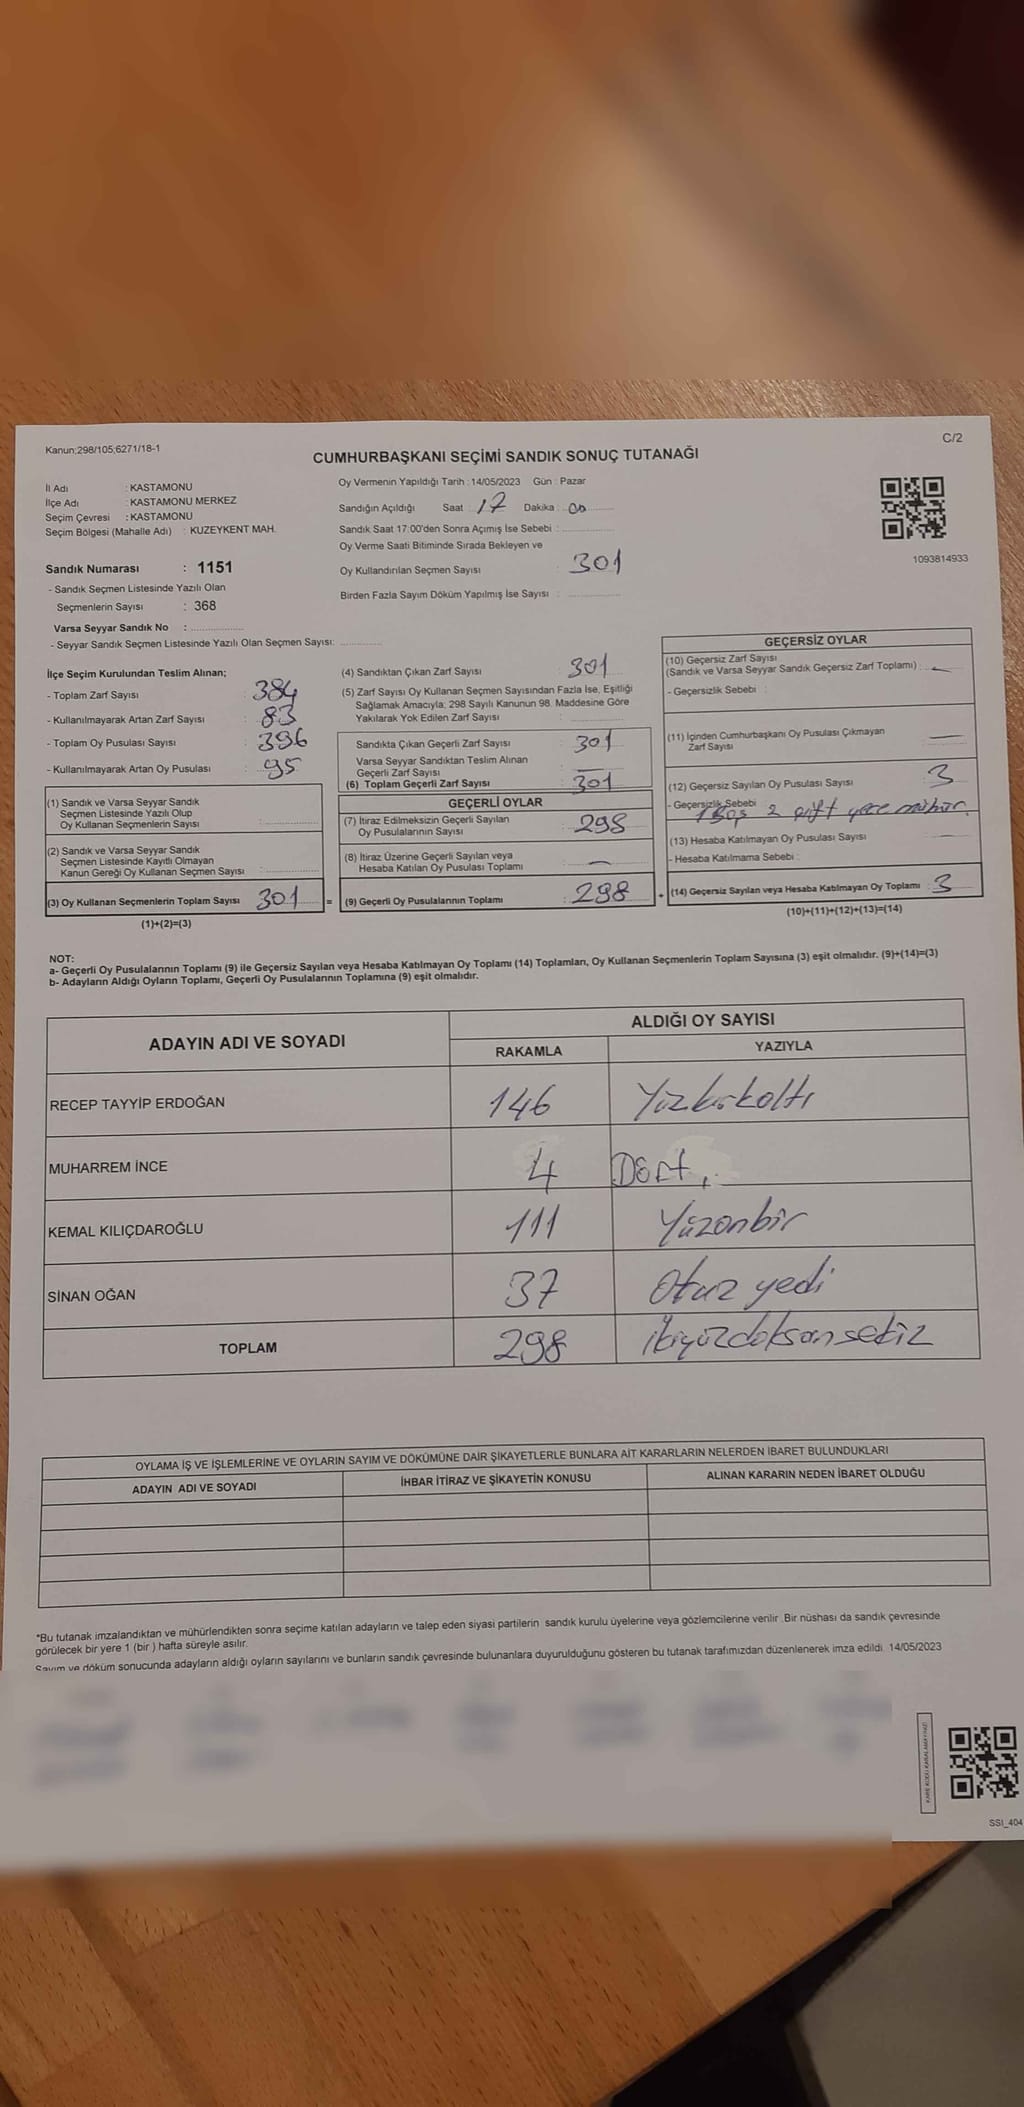 Kanun;298/105;6271/18-1
C/2
CUMHURBAŞKANI SEÇİMİ SANDIK SONUÇ TUTANAĞI
İl Adı : KASTAMONU
İlçe Adı : KASTAMONU MERKEZ
Seçim Çevresi : KASTAMONU
Seçim Bölgesi (Mahalle Adı) : KUZEYKENT MAH.
Sandık Numarası : 1151
- Sandık Seçmen Listesinde Yazılı Olan
Seçmenlerin Sayısı : 368
Varsa Seyyar Sandık No :
- Seyyar Sandık Seçmen Listesinde Yazılı Olan Seçmen Sayısı:
Oy Vermenin Yapıldığı Tarih : 14/05/2023 Gün : Pazar
Sandığın Açıldığı Saat : 17 Dakika : 00
Sandık Saat 17:00'den Sonra Açımış İse Sebebi :
Oy Verme Saati Bitiminde Sırada Bekleyen ve
Oy Kullandırılan Seçmen Sayısı : 301
Birden Fazla Sayım Döküm Yapılmış İse Sayısı :
1093814933
İlçe Seçim Kurulundan Teslim Alınan;
- Toplam Zarf Sayısı : 384
- Kullanılmayarak Artan Zarf Sayısı : 83
- Toplam Oy Pusulası Sayısı : 396
- Kullanılmayarak Artan Oy Pusulası : 95
(1) Sandık ve Varsa Seyyar Sandık
Seçmen Listesinde Yazılı Olup
Oy Kullanan Seçmenlerin Sayısı :
(2) Sandık ve Varsa Seyyar Sandık
Seçmen Listesinde Kayıtlı Olmayan
Kanun Gereği Oy Kullanan Seçmen Sayısı :
(3) Oy Kullanan Seçmenlerin Toplam Sayısı 301 =
(1)+(2)=(3)
(4) Sandıktan Çıkan Zarf Sayısı : 301
(5) Zarf Sayısı Oy Kullanan Seçmen Sayısından Fazla İse, Eşitliği
Sağlamak Amacıyla; 298 Sayılı Kanunun 98. Maddesine Göre
Yakılarak Yok Edilen Zarf Sayısı :
Sandıkta Çıkan Geçerli Zarf Sayısı : 301
Varsa Seyyar Sandıktan Teslim Alınan
Geçerli Zarf Sayısı : —
(6) Toplam Geçerli Zarf Sayısı : 301
GEÇERLİ OYLAR
(7) İtiraz Edilmeksizin Geçerli Sayılan
Oy Pusulalarının Sayısı : 298
(8) İtiraz Üzerine Geçerli Sayılan veya
Hesaba Katılan Oy Pusulası Toplamı : —
(9) Geçerli Oy Pusulalarının Toplamı : 298 +
GEÇERSİZ OYLAR
(10) Geçersiz Zarf Sayısı
(Sandık ve Varsa Seyyar Sandık Geçersiz Zarf Toplamı) : —
- Geçersizlik Sebebi :
(11) İçinden Cumhurbaşkanı Oy Pusulası Çıkmayan
Zarf Sayısı : —
(12) Geçersiz Sayılan Oy Pusulası Sayısı : 3
- Geçersizlik Sebebi : 1 Boş 2 çift yere mühür
(13) Hesaba Katılmayan Oy Pusulası Sayısı :
- Hesaba Katılmama Sebebi :
(14) Geçersiz Sayılan veya Hesaba Katılmayan Oy Toplamı : 3
(10)+(11)+(12)+(13)=(14)
NOT:
a- Geçerli Oy Pusulalarının Toplamı (9) ile Geçersiz Sayılan veya Hesaba Katılmayan Oy Toplamı (14) Toplamları, Oy Kullanan Seçmenlerin Toplam Sayısına (3) eşit olmalıdır. (9)+(14)=(3)
b- Adayların Aldığı Oyların Toplamı, Geçerli Oy Pusulalarının Toplamına (9) eşit olmalıdır.
ADAYIN ADI VE SOYADI
ALDIĞI OY SAYISI
RAKAMLA YAZIYLA
RECEP TAYYİP ERDOĞAN 146 Yüzkırkaltı
MUHARREM İNCE 4 Dört
KEMAL KILIÇDAROĞLU 111 Yüzonbir
SİNAN OĞAN 37 Otuz yedi
TOPLAM 298 ikiyüzdoksansekiz
OYLAMA İŞ VE İŞLEMLERİNE VE OYLARIN SAYIM VE DÖKÜMÜNE DAİR ŞİKAYETLERLE BUNLARA AİT KARARLARIN NELERDEN İBARET BULUNDUKLARI
ADAYIN ADI VE SOYADI İHBAR İTİRAZ VE ŞİKAYETİN KONUSU ALINAN KARARIN NEDEN İBARET OLDUĞU
*Bu tutanak imzalandıktan ve mühürlendikten sonra seçime katılan adayların ve talep eden siyasi partilerin sandık kurulu üyelerine veya gözlemcilerine verilir. Bir nüshası da sandık çevresinde
görülecek bir yere 1 (bir) hafta süreyle asılır.
Sayım ve döküm sonucunda adayların aldığı oyların sayılarını ve bunların sandık çevresinde bulunanlara duyurulduğunu gösteren bu tutanak tarafımızdan düzenlenerek imza edildi. 14/05/2023
SSI_404